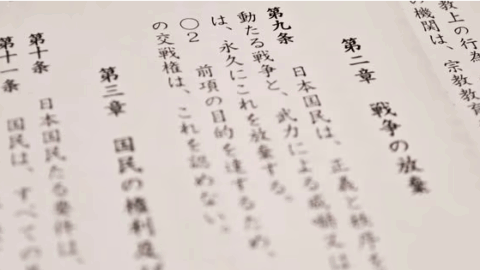 教上の行為
の機関は、宗教教育
第二章　戦争の放棄
第九条　日本国民は、正義と秩序を
動たる戦争と、武力による威嚇又は
は、永久にこれを放棄する。
○２　前項の目的を達するため、
の交戦権は、これを認めない。
第三章　国民の権利及
第十条　日本国民たる要件は、
第十一条　国民は、すべての